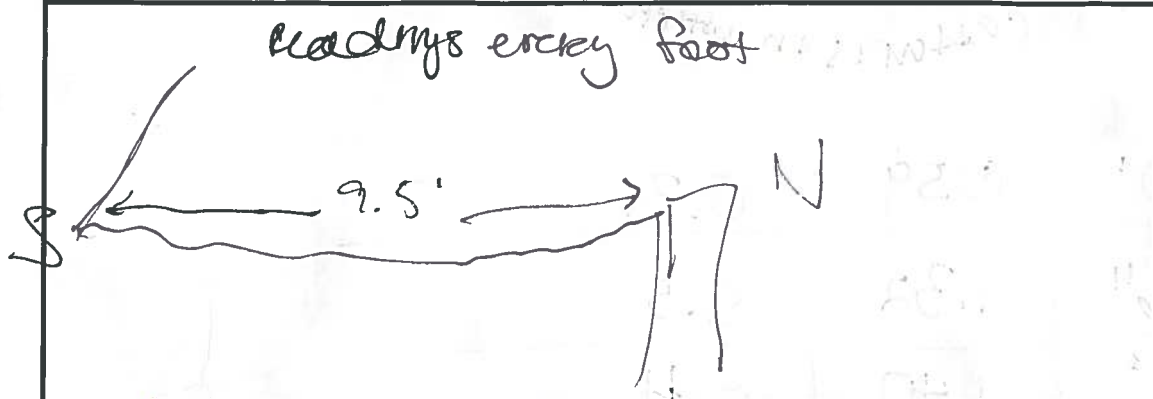 Readings every foot
9.5'
N
S